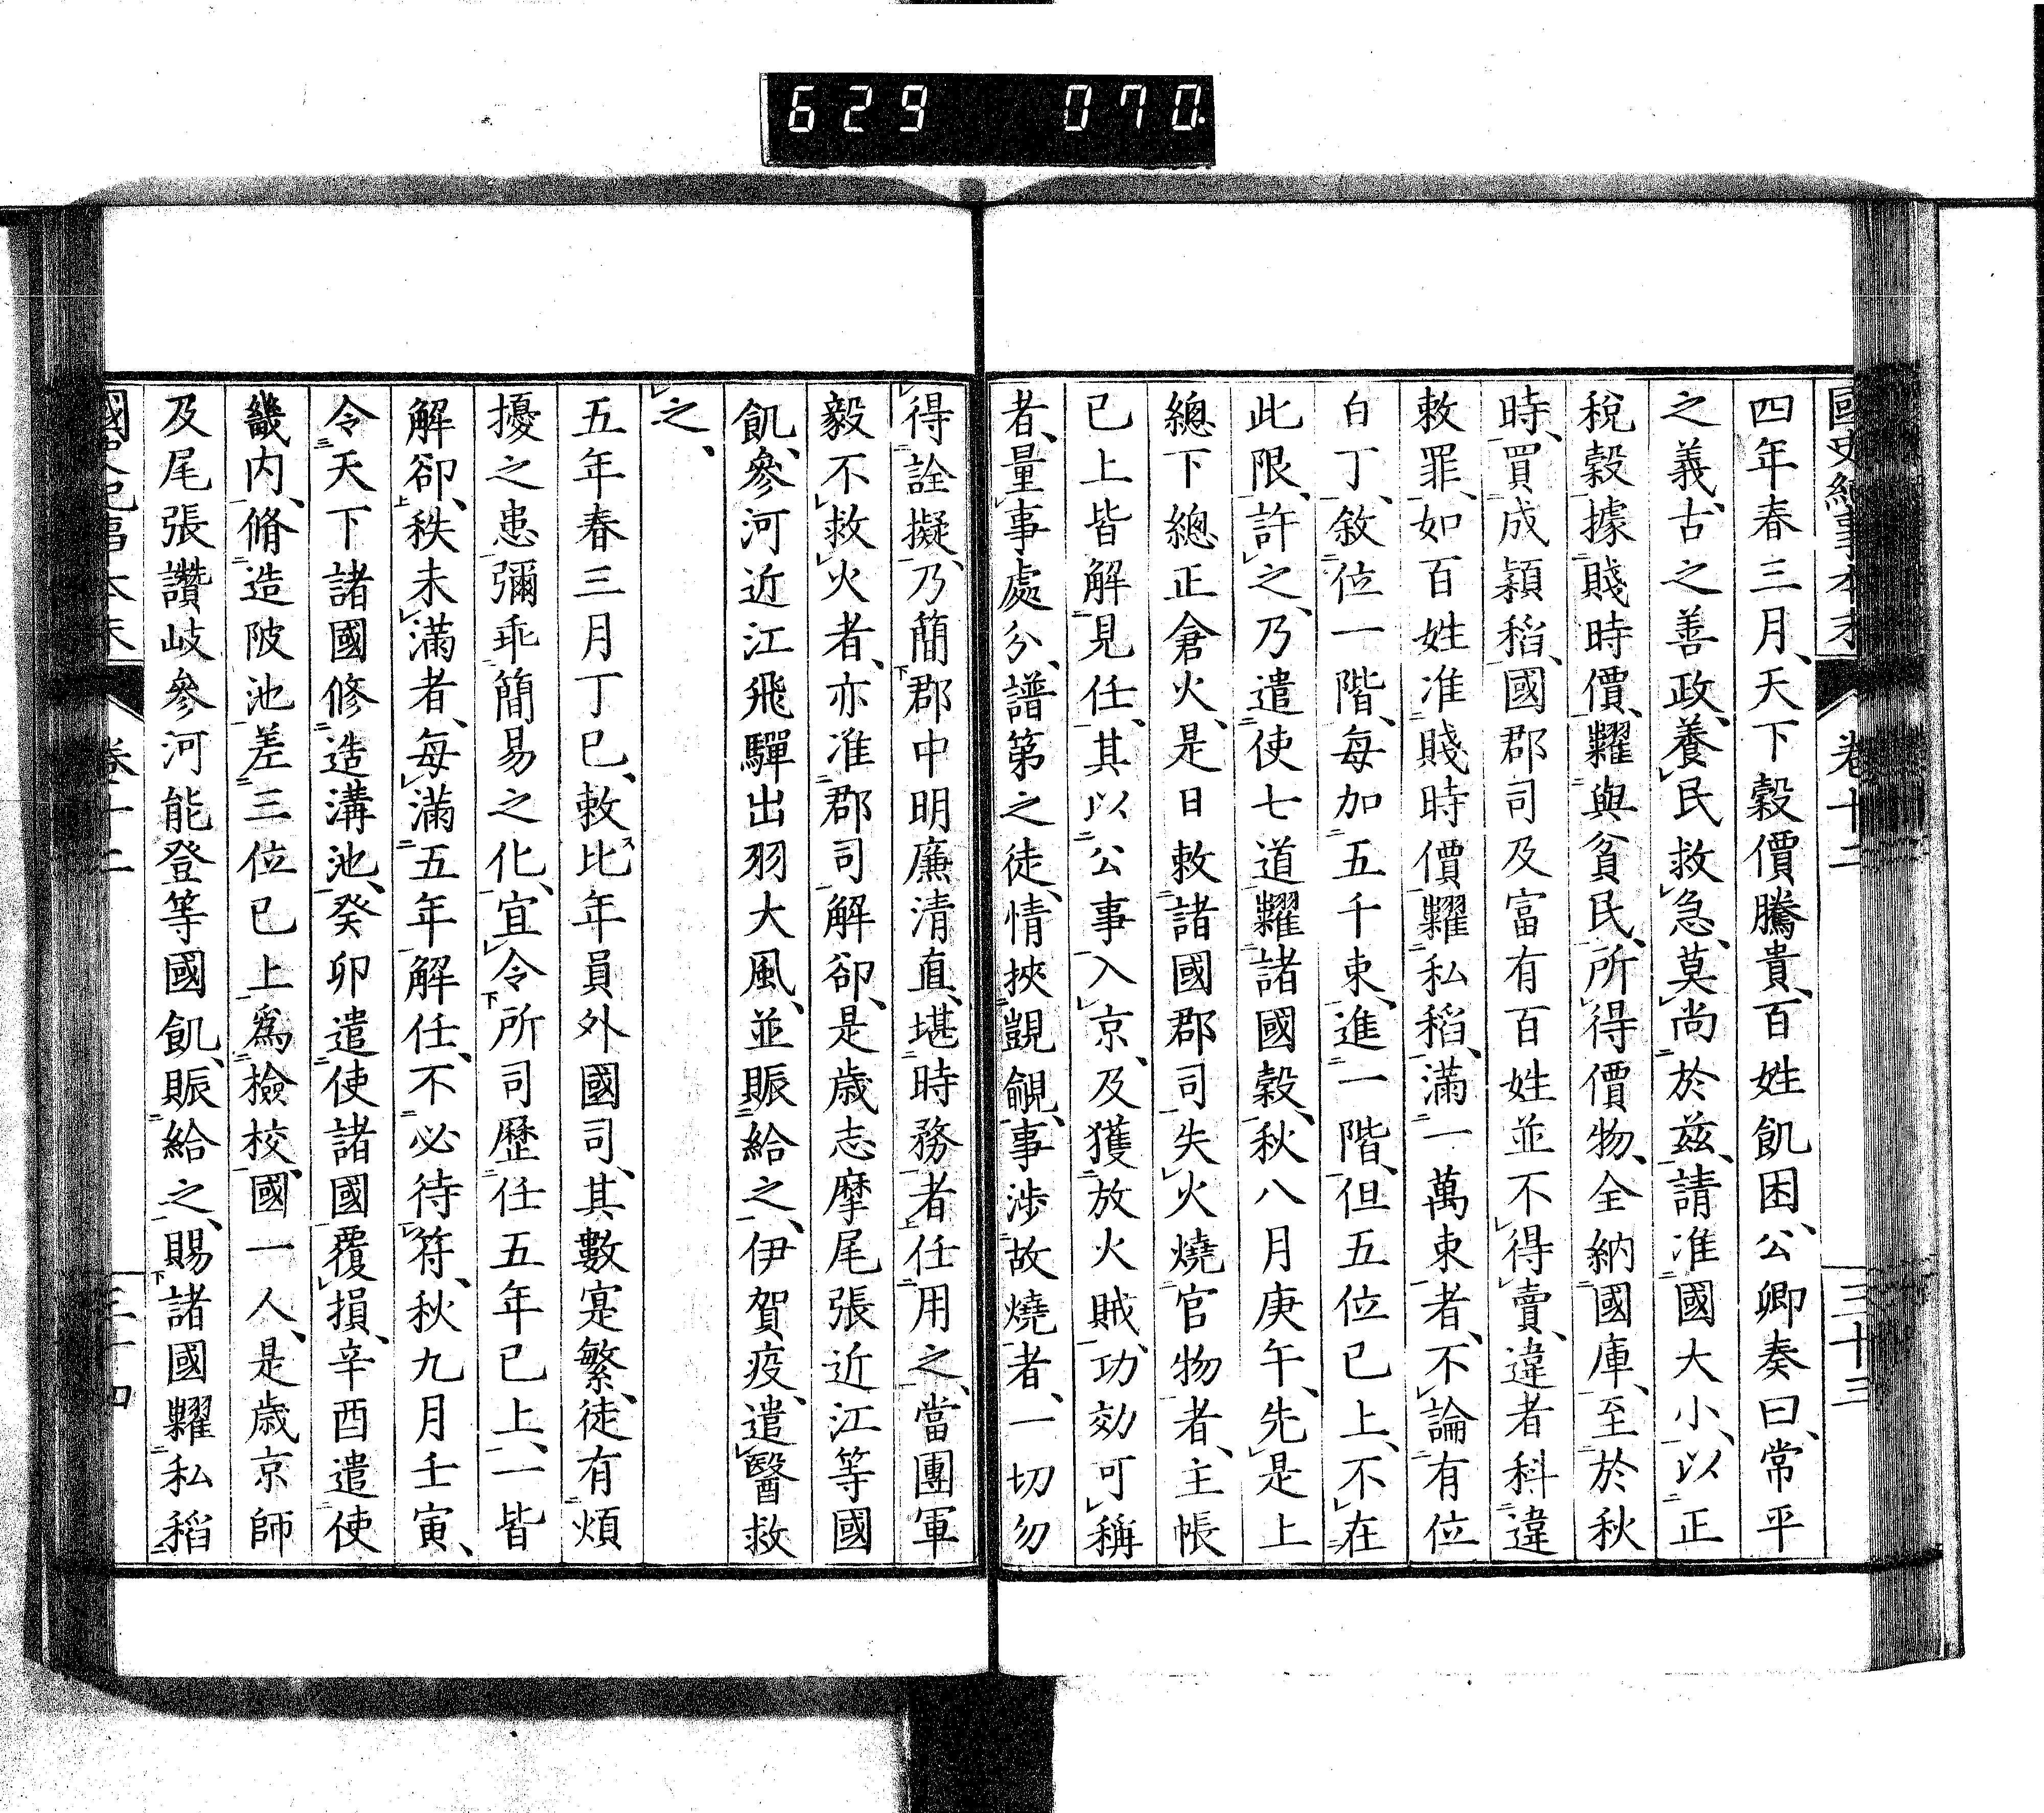 629 070.
國史紀事本末 卷十二 三十三
四年春三月、天下穀價騰貴、百姓飢困、公卿奏曰、常平
之義、古之善政、養民救急、莫尚於茲、請准國大小、以正
稅穀、據賤時價、糶與貧民、所得價物、全納國庫、至於秋
時、買成穎稻、國郡司及富有百姓並不得賣、違者科違
敕罪、如百姓准賤時價糶私稻、滿一萬束者、不論有位
白丁、敘位一階、每加五千束、進一階、但五位已上、不在
此限、許之、乃遣使七道糶諸國穀、秋八月庚午、先是上
總下總正倉火、是日敕諸國郡司失火燒官物者、主帳
已上皆解見任、其以公事入京、及獲放火賊、功効可稱
者、量事處分、譜第之徒、情挾覬覦、事涉故燒者、一切勿
得詮擬、乃簡郡中明廉清直、堪時務者任用之、當團軍
毅不救火者、亦准郡司解卻、是歲志摩尾張近江等國
飢、參河近江飛驒出羽大風、並賑給之、伊賀疫、遣醫救
之、
五年春三月丁巳、敕比年員外國司、其數寔繁、徒有煩
擾之患、彌乖簡易之化、宜令所司歷任五年已上、一皆
解卻、秩未滿者、每滿五年解任、不必待符、秋九月壬寅、
令天下諸國修造溝池、癸卯遣使諸國覆損、辛酉遣使
畿內、脩造陂池、差三位已上爲檢校、國一人、是歲京師
及尾張讚岐參河能登等國飢、賑給之、賜諸國糶私稻
國史紀事本末 卷十二 三十四